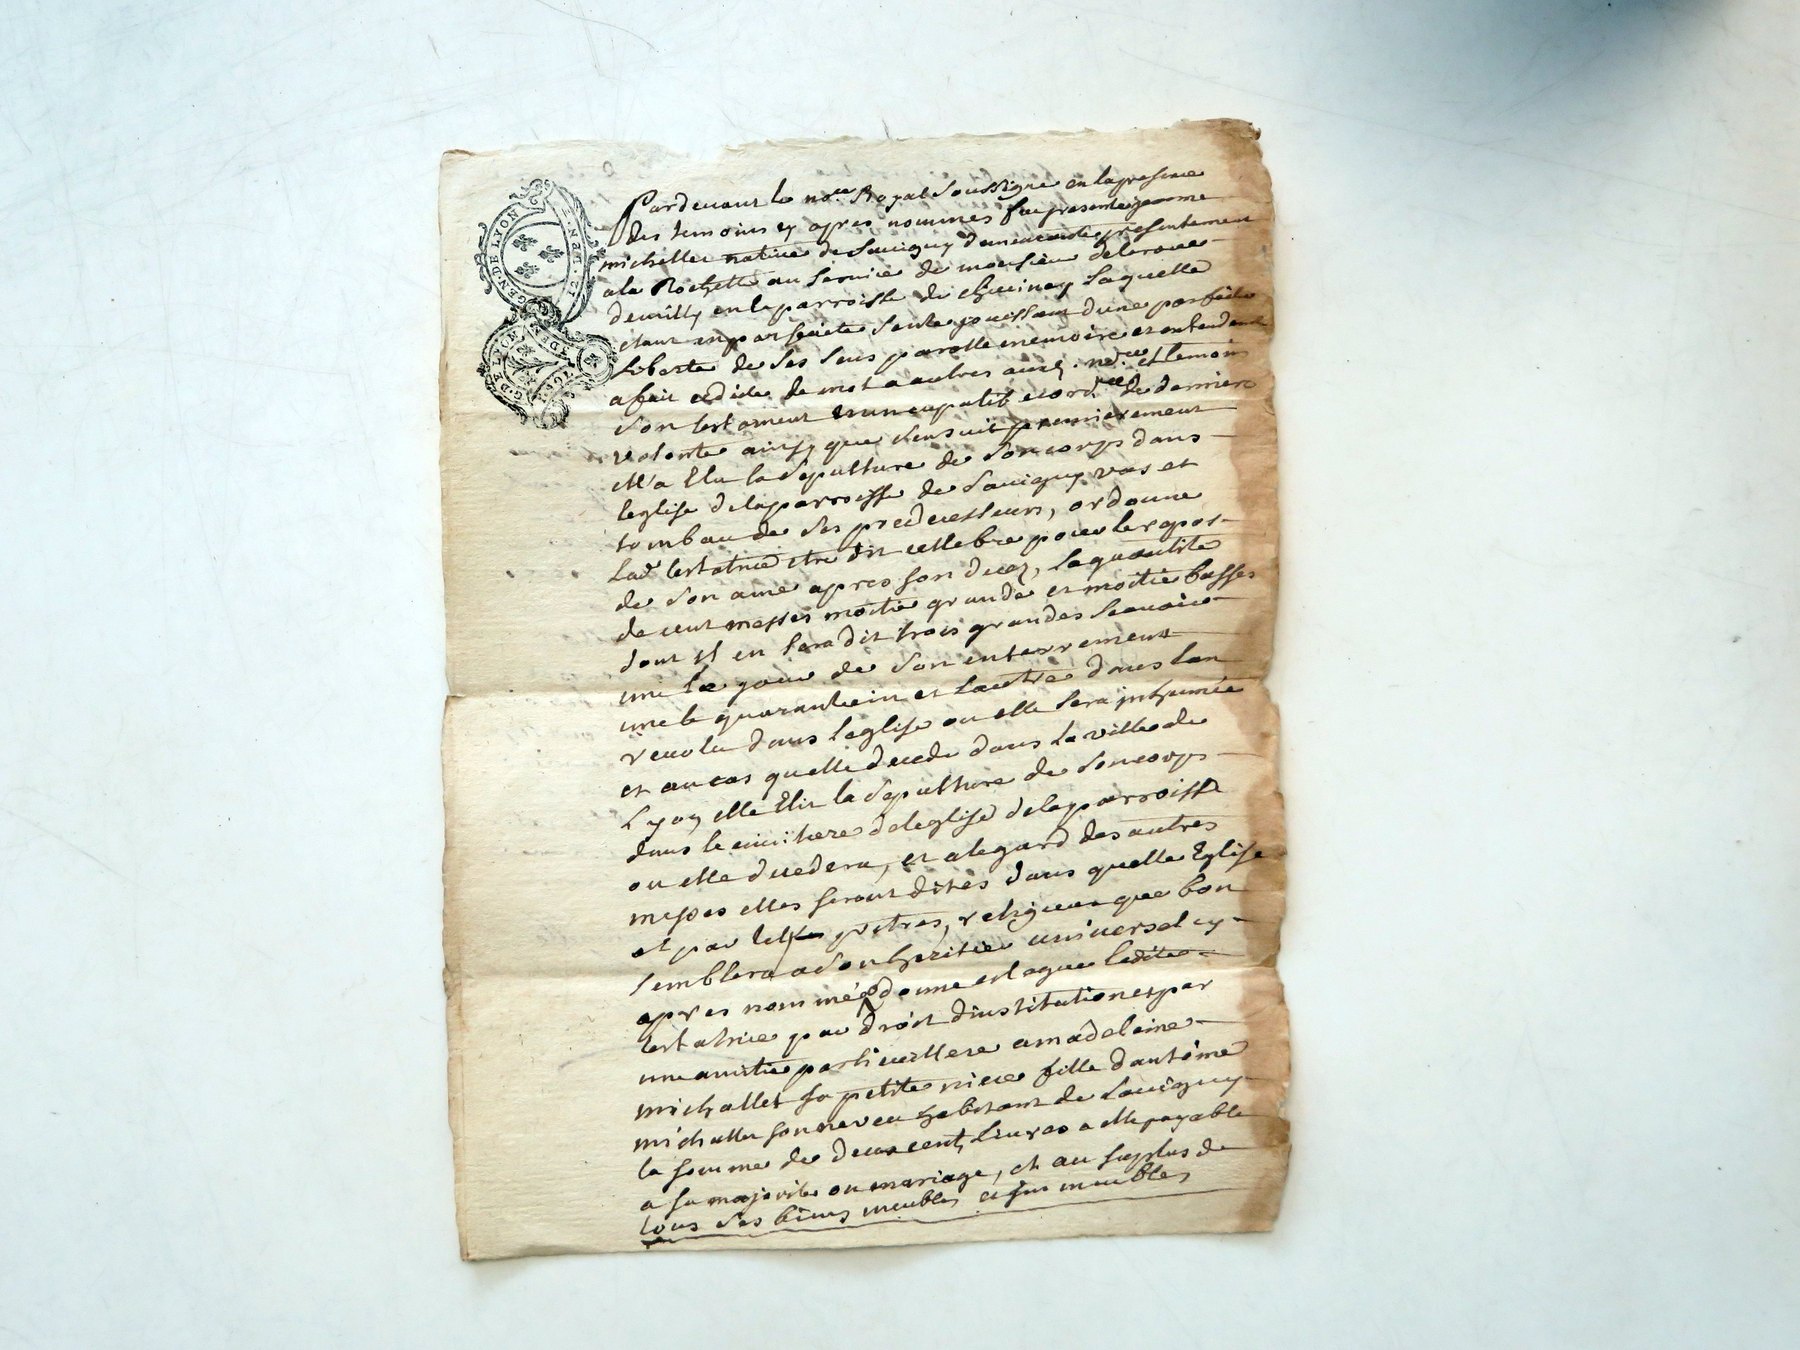 GEN. DE LYON
G. DE LYON
Pardevant le no.re Royal Soussigne en la presence
des temoins cy apres nommés fut presente jeanne
michallet native de Savigny demeurante presentement
a la Rochette au service de monsieur delaroue
demilly en la parroisse de laquelle
etant en parfaite sante jouissant dune parfaite
liberte de ses sens parolle memoire et entendement
a fait et dicte de mot a autres aud. no.re et temoins
son testament nuncupatif et ord.re de derniere
volonte ainsy que sensuit premierement
ella Elu la sepulture de son corps dans
leglise de la parroisse de Savigny vas et
tombau de ses predecesseurs, ordonne
lad. testatrice etre dit cellebré pour le repos
de son ame apres son deces, la quantité
de cent messes moitie grande et moitie basses
dont il en sera dit trois grandes scavoir
une le jour de son enterrement
une le quarantein et lautre dans lan
revolu dans leglise ou elle sera inhumée
et au cas quelle decede dans la ville de
Lyon elle Elit la sepulture de son corps
dans le cimitiere de leglise de la parroisse
ou elle decedera, et alegard des autres
messes elles seront dites dans quelle Eglise
et par tels pretres, religieux que bon
semblera a son heritier universel cy
apres nommé donne et legue ladite
testatrice par droit dinstitution et par
une amitie particulliere a madelaine
michallet sa petite niece fille dantoine
michallet son neveu habitant de Savigny
la somme de deux cent livres a elle payable
a sa majorite ou mariage, et au surplus de
tous ses biens meubles et immeubles